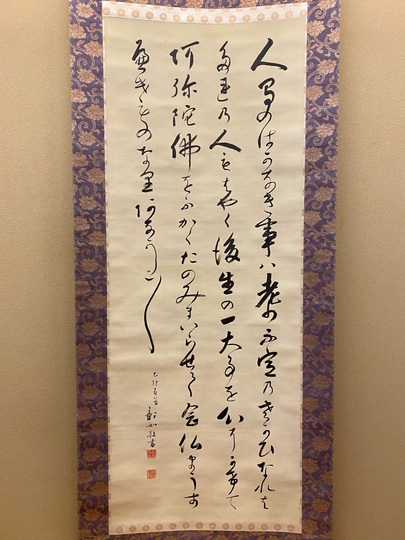 人間のはかなき事ハ老少不定のさかひなれは
たれの人もはやく後生の一大事を心にかけて
阿弥陀佛をふかくたのみまいらせて念仏まうす
へきものなりあなかしこ